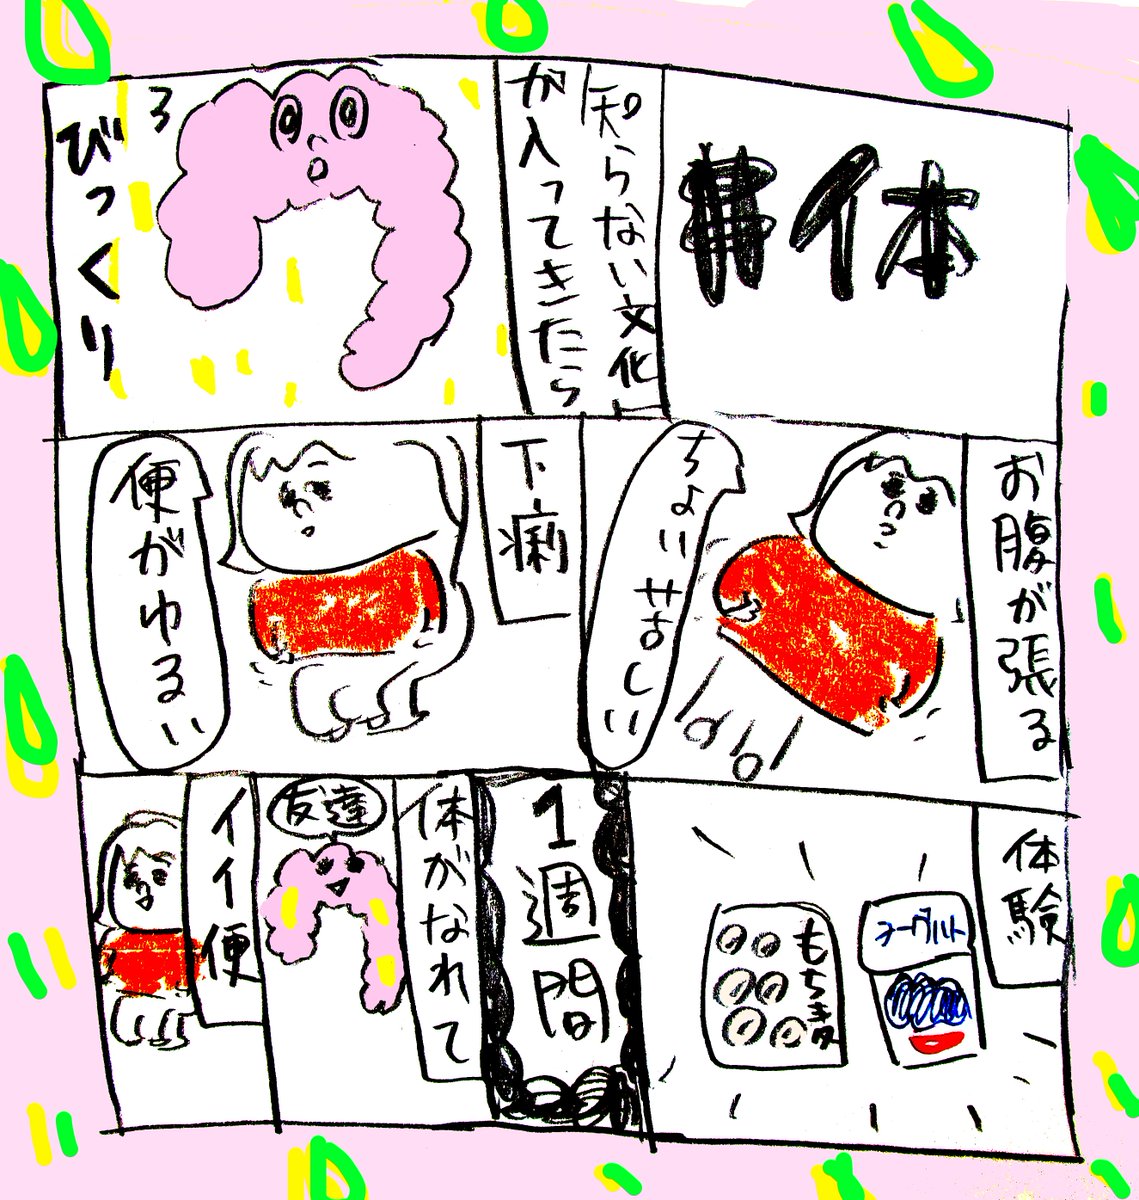 体
知らない文化
が入ってきたら
びっくり
お腹が張る
ちょい苦しい
下痢
便がゆるい
体験
ヨーグルト
もち麦
1週間
体がなれて
友達
イイ便